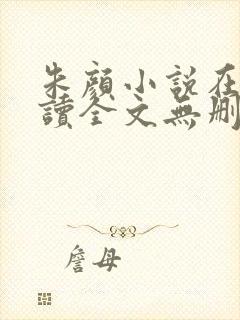 朱顏小說在
讀全文無刪
詹母